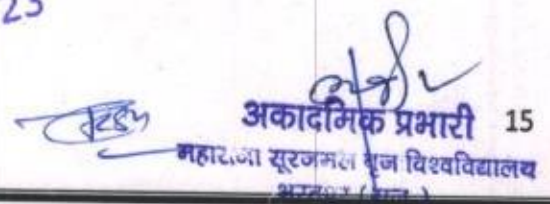 23
अकादमिक प्रभारी 15
महाराजा सूरजमल बृज विश्वविद्यालय
भरतपुर (राज.)